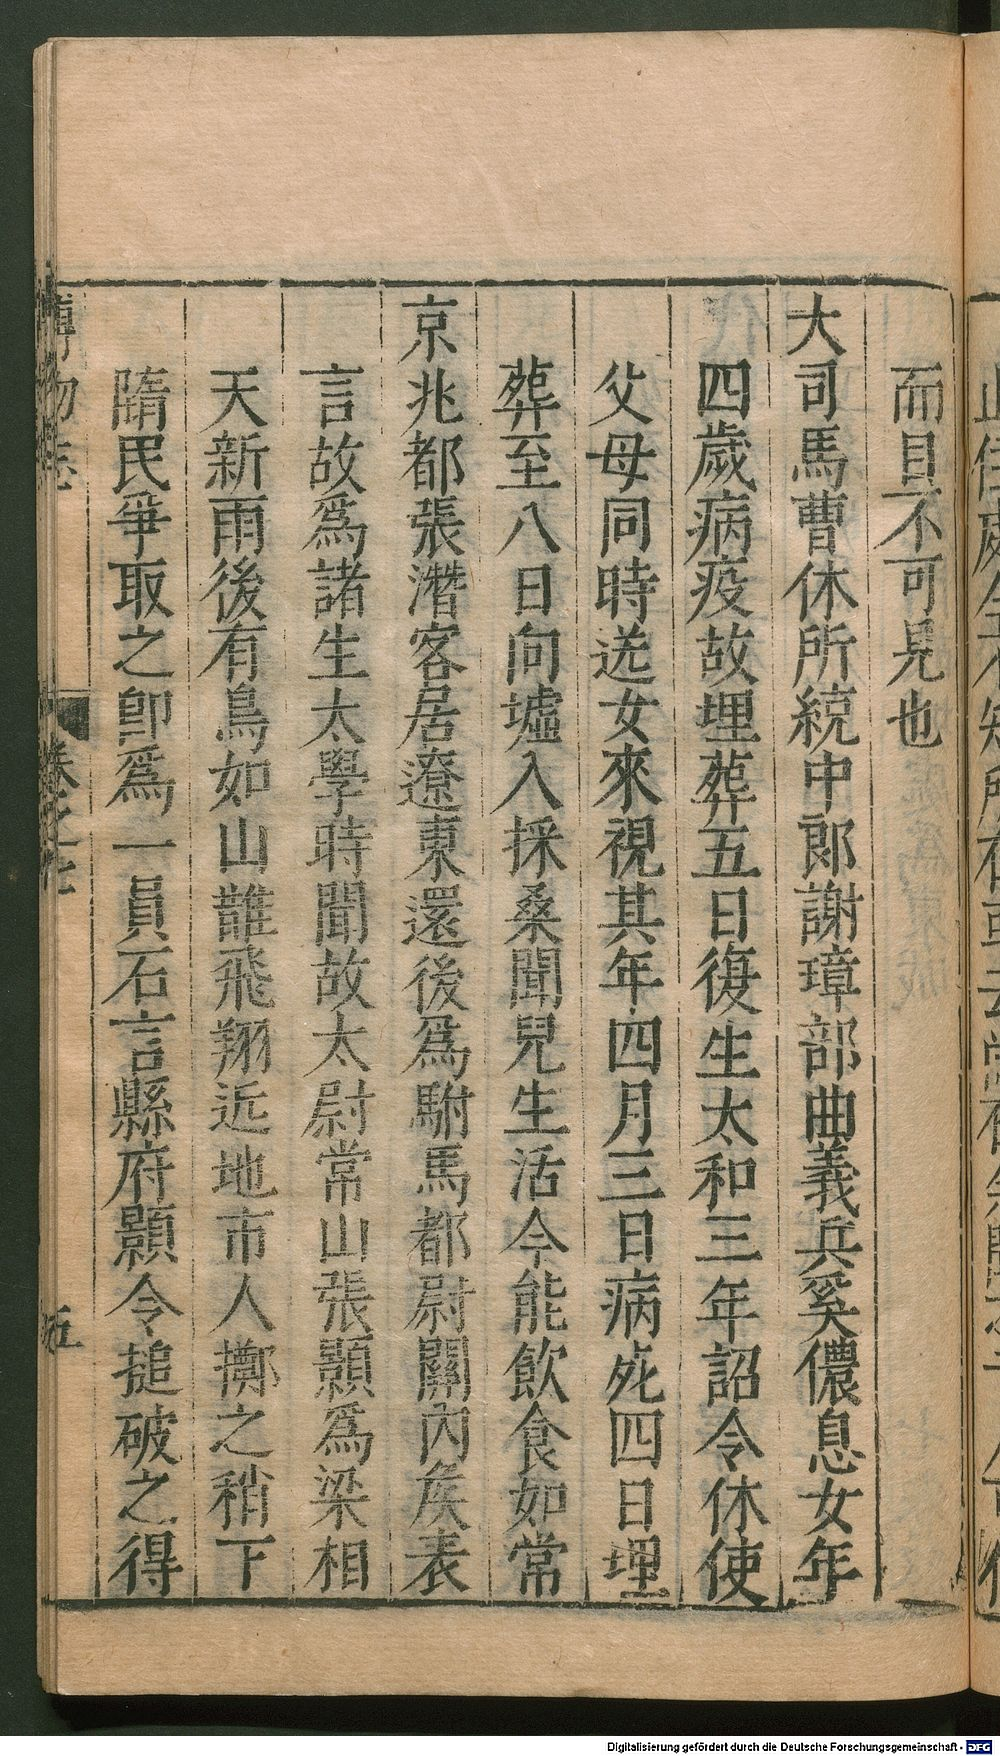 而且不可見也
大司馬曹休所統中郎謝璋部曲義兵奚儂息女年
四歲病疫故埋葬五日復生太和三年詔令休使
父母同時送女來視其年四月三日病死四日埋
葬至八日向墟入採桑聞兒生活今能飲食如常
京兆都張潛客居遼東還後爲駙馬都尉關內矦表
言故爲諸生太學時聞故太尉常山張顥爲梁相
天新雨後有鳥如山鵲飛翔近地市人擲之稍下
隋民爭取之卽爲一員石言縣府顥令搥破之得
博物志
卷之七
五
Digitalisierung gefördert durch die Deutsche Forschungsgemeinschaft - DFG